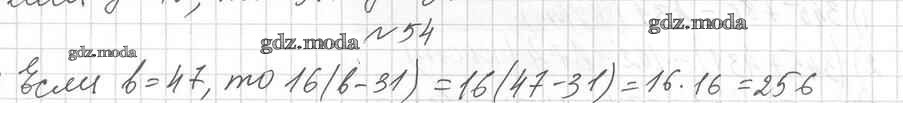 gdz.moda
gdz.moda № 54
gdz.moda
Если b = 47, то 16(b - 31) = 16(47 - 31) = 16 · 16 = 256